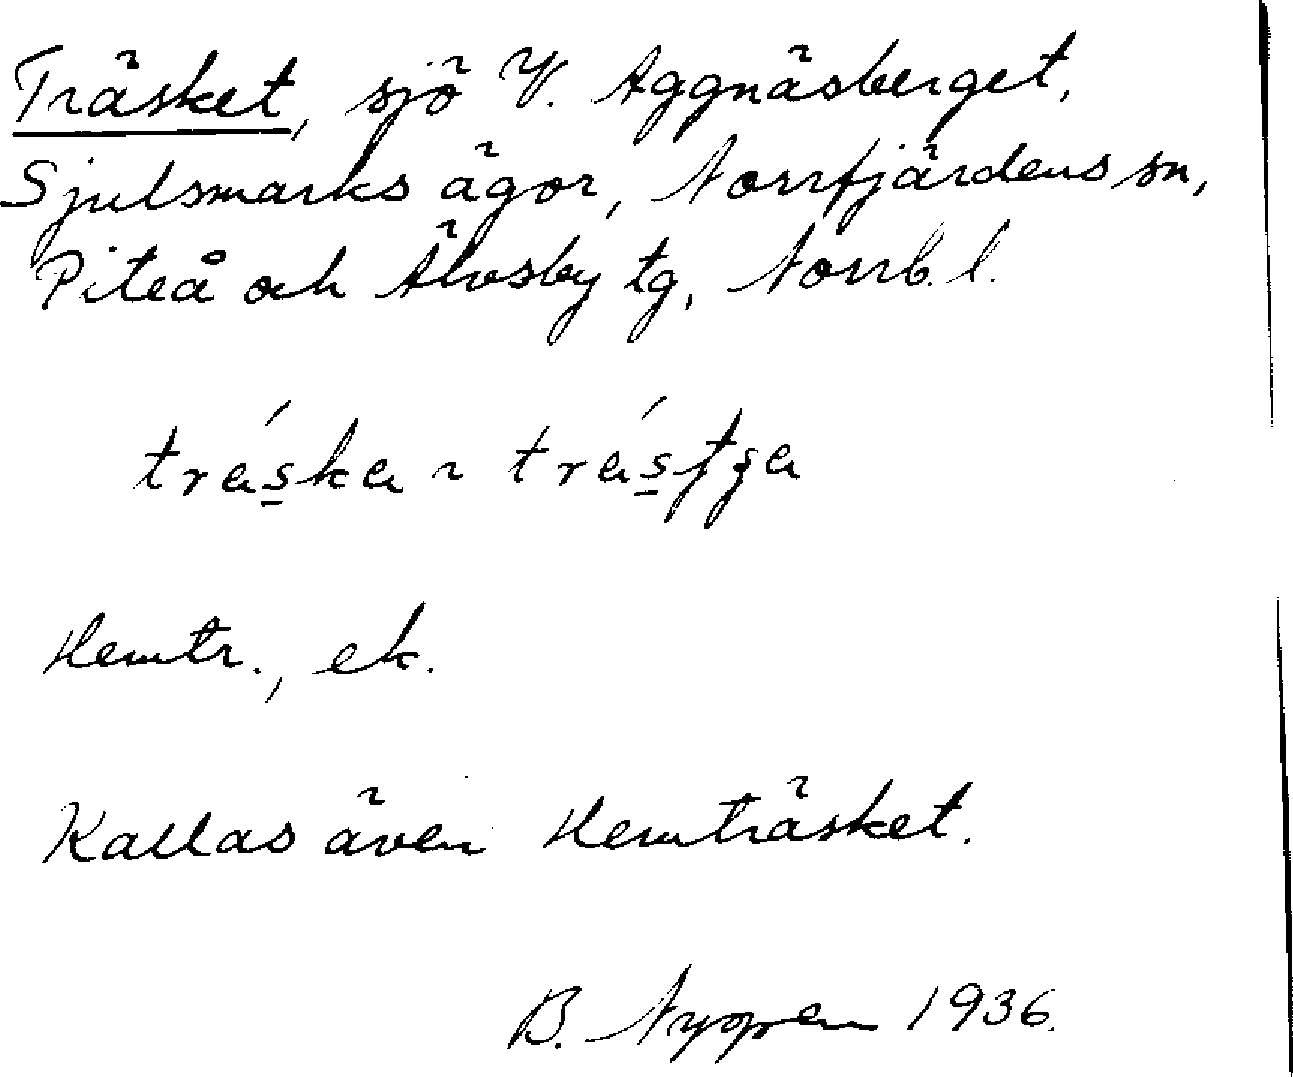 Träsket, sjö V. Aggnäsberget,
Sjulsmarks ägor, Norrfjärdens sn,
Piteå och Älvsby tg, Norrb. l.
tráska ~
Hemtr., ek.
Kallas även Hemträsket.
B. 1936.